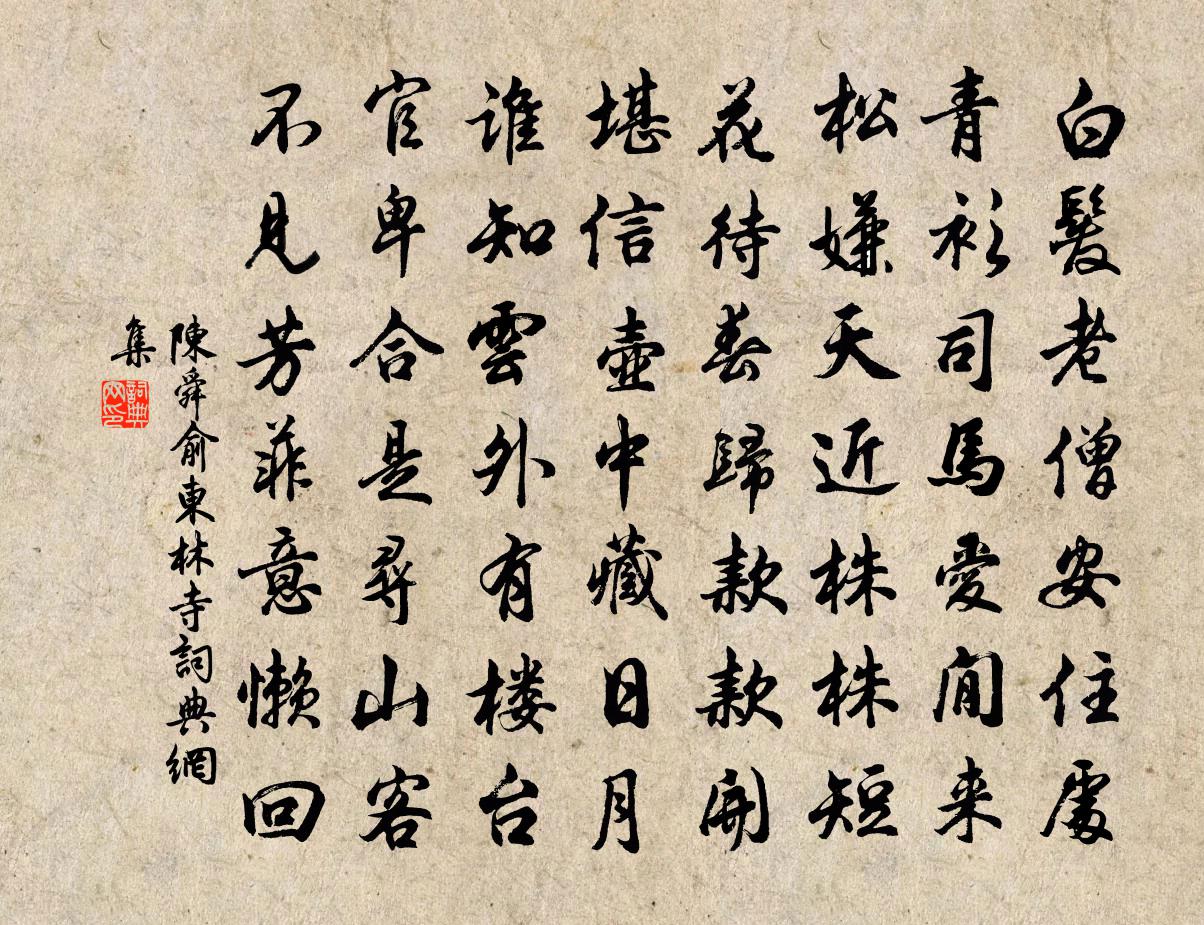 白髮老僧安住處
青衫司馬愛閒来
松嫌天近株株短
花待春歸款款開
堪信壺中藏日月
誰知雲外有楼台
官卑合是尋山客
不見芳菲意懶回
陳舜俞東林寺詞典網
集
詞典
网印